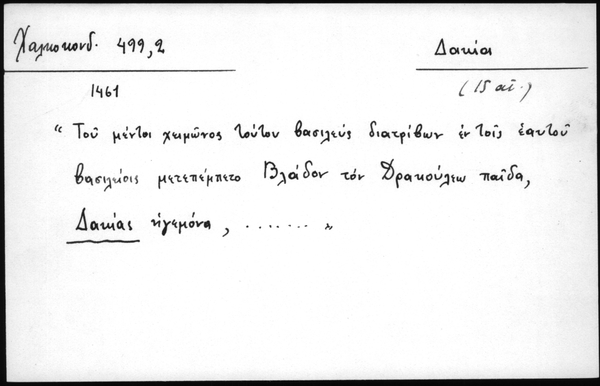 Χαλκοκονδ. 499,2
Δακία
1461
(15 αἰ.)
“ Τοῦ μέντοι χειμῶνος τούτου βασιλεύς διατρίβων ἐν τοῖς ἑαυτοῦ
βασιλείοις μετεπέμπετο Βλάδον τόν Δρακούλεω παῖδα,
Δακίας ἡγεμόνα, ....... „